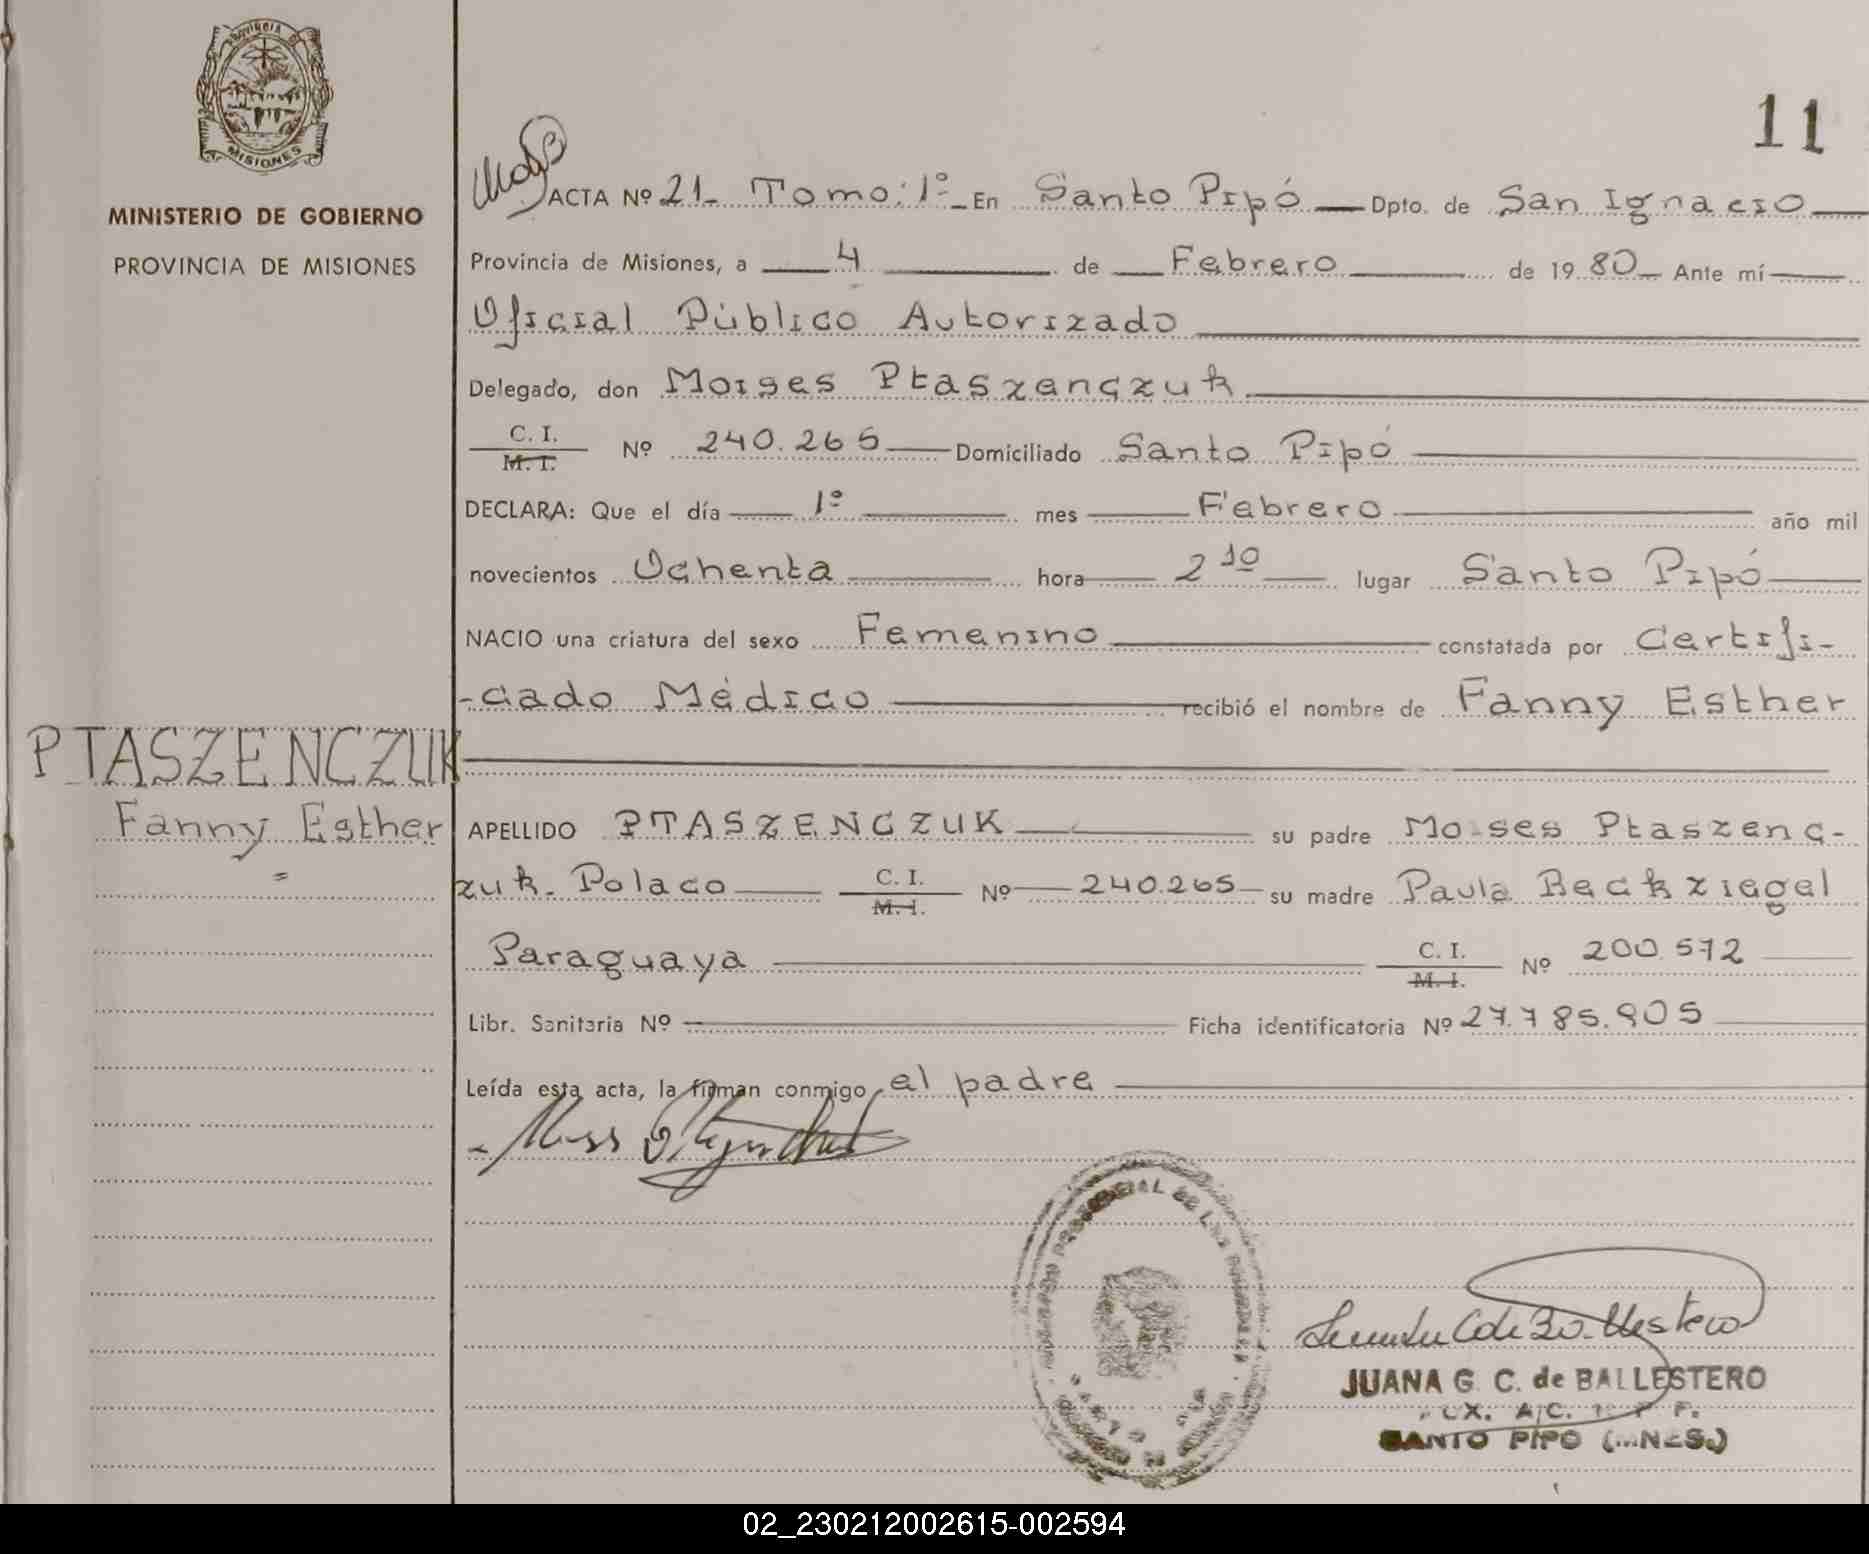 Provincia de
MISIONES
MINISTERIO DE GOBIERNO
PROVINCIA DE MISIONES
11
ACTA Nº 21- Tomo: 1º- En Santo Pipó Dpto. de San Ignacio
Provincia de Misiones, a 4 de Febrero de 1980 Ante mí
Oficial Público Autorizado
Delegado, don Moises Ptaszenczuk
C. I.
M. I. Nº 240.265 Domiciliado Santo Pipó
DECLARA: Que el día 1º mes Febrero año mil
novecientos Ochenta hora 2 10 lugar Santo Pipó
NACIO una criatura del sexo Femenino constatada por Certifi-
-cado Médico recibió el nombre de Fanny Esther
PTASZENCZUK
Fanny Esther
APELLIDO PTASZENCZUK su padre Moises Ptaszenc-
zuk. Polaco C. I. M. I. Nº 240.265 su madre Paula Beckziegel
Paraguaya C. I. M. I. Nº 200.572
Libr. Sanitaria Nº Ficha identificatoria Nº 27.785.905
Leída esta acta, la firman conmigo el padre
JUANA G. C. de BALLESTERO
SANTO PIPO (MNES.)
02_230212002615-002594